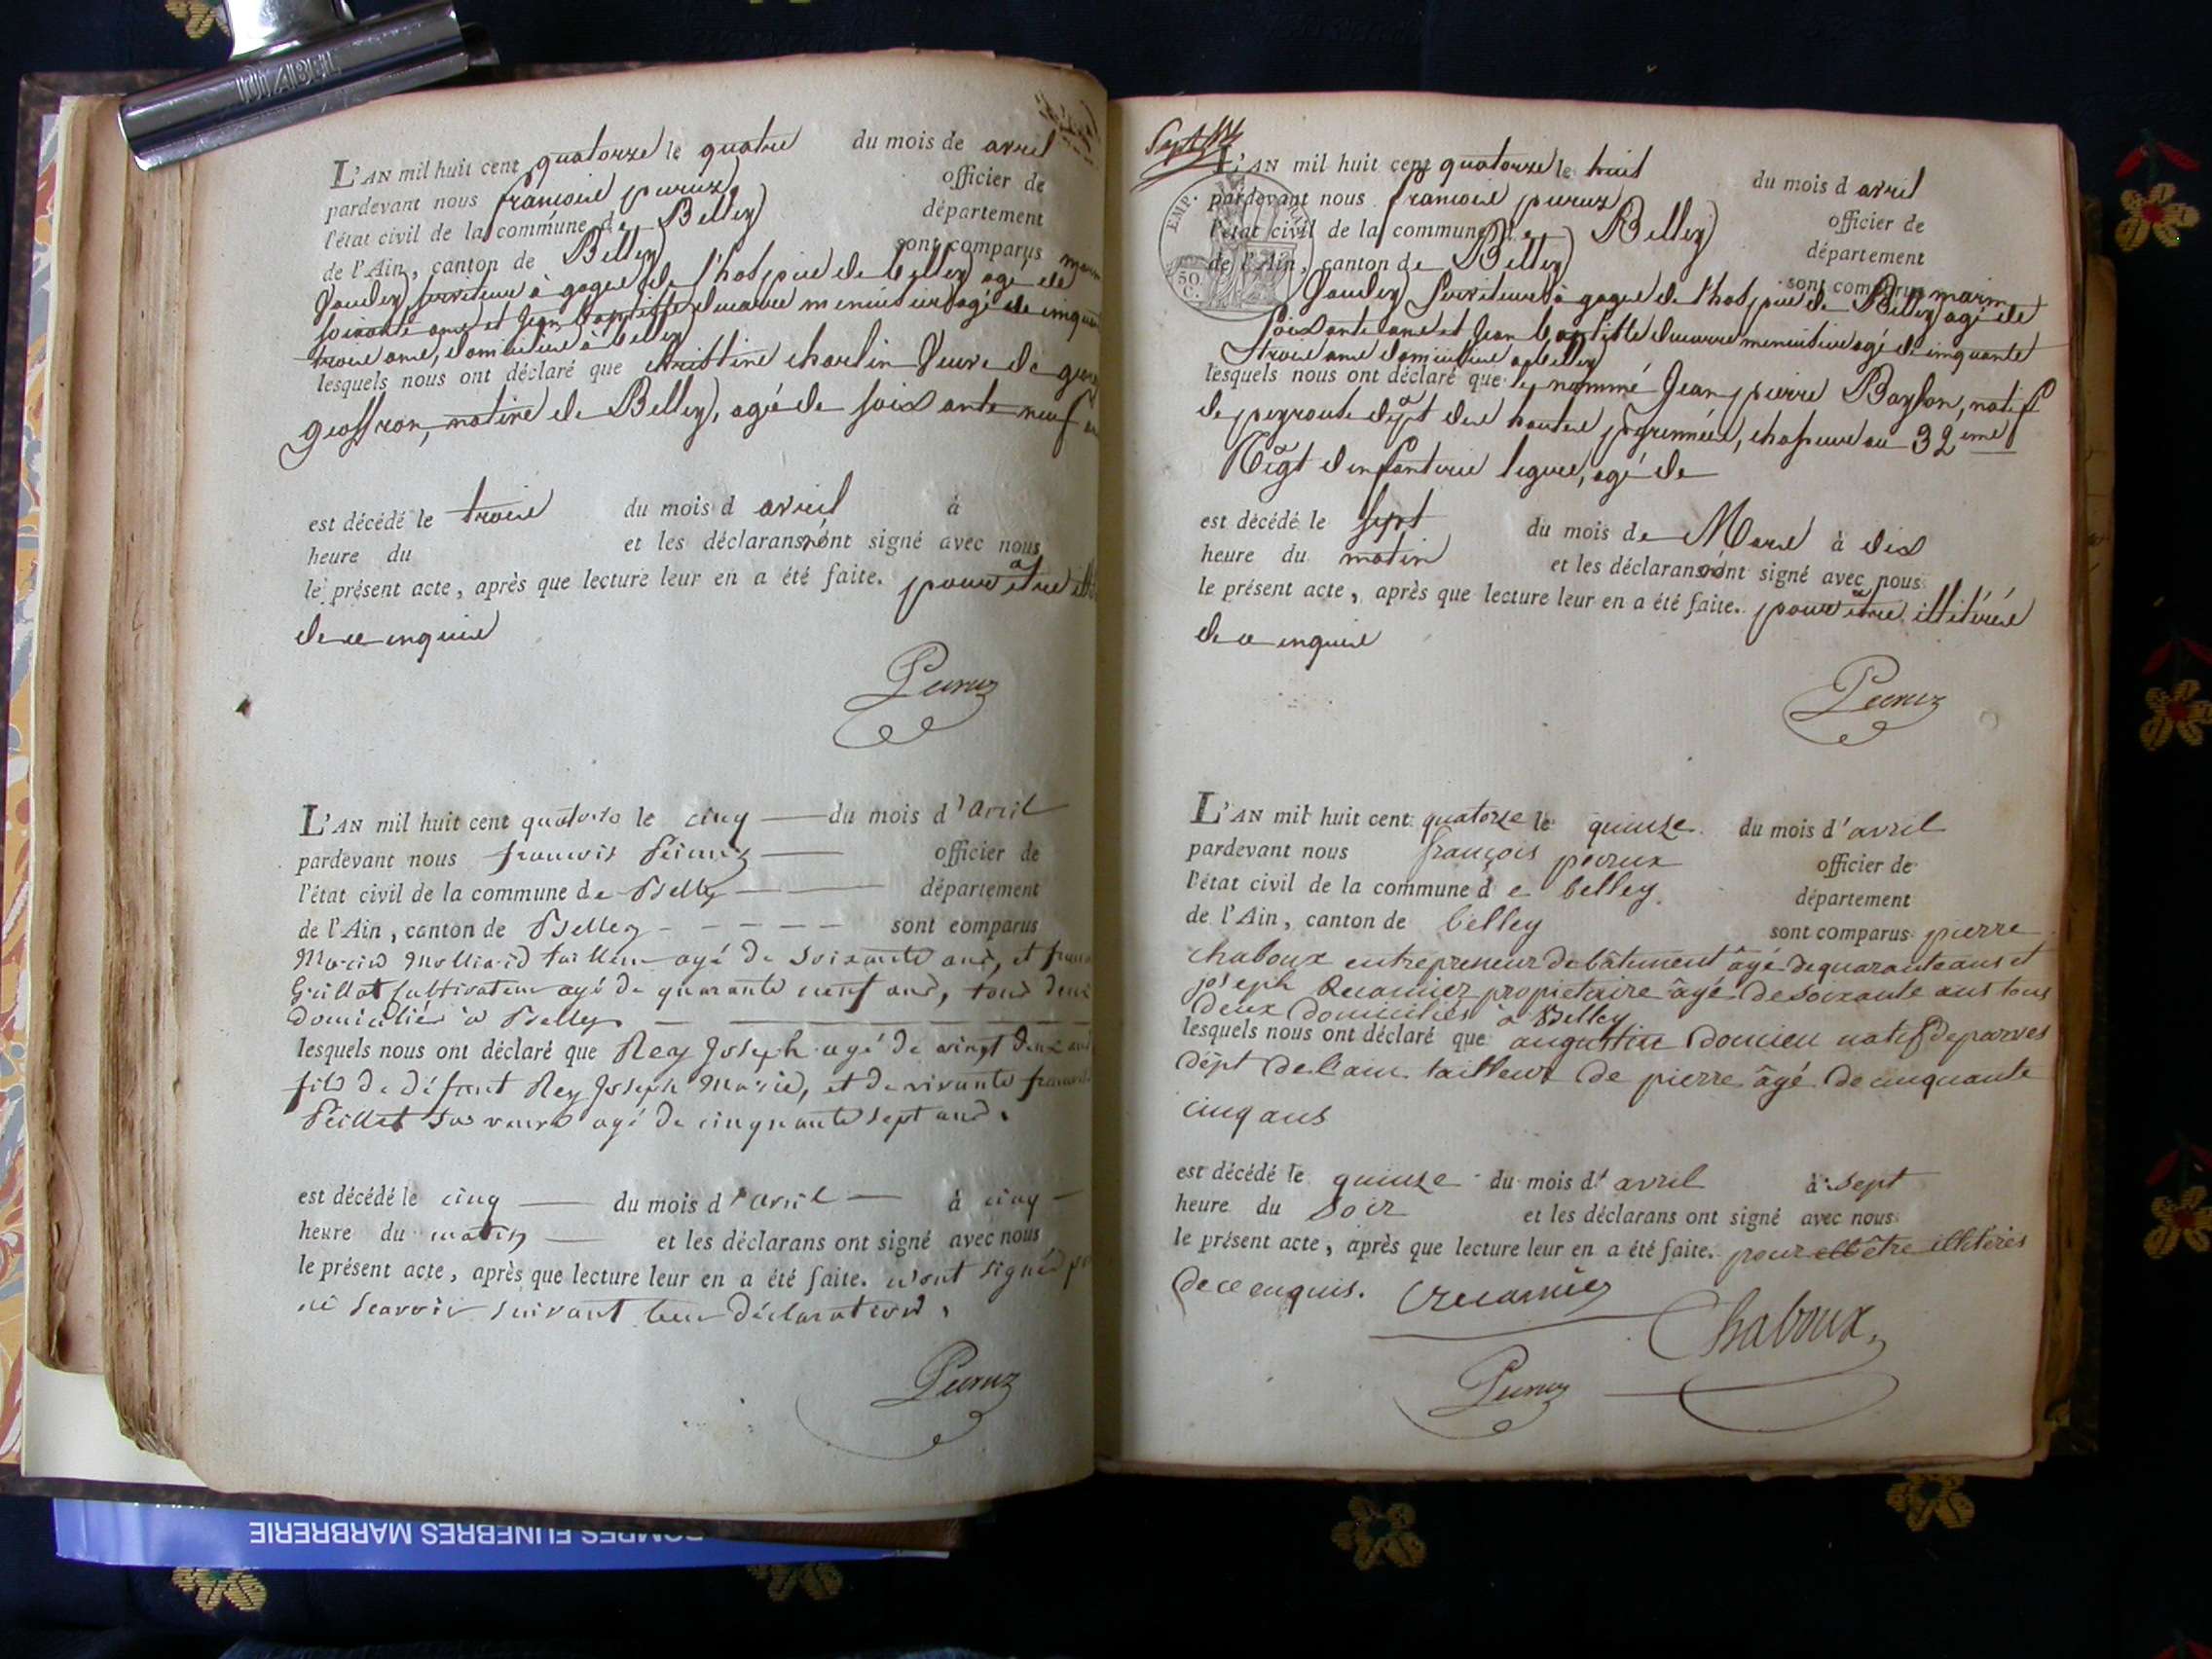 DIABEL
L'AN mil huit cent quatorze le quatre du mois de avril
pardevant nous francois peeruz officier de
l'état civil de la commune de Belley département
de l'Ain, canton de Belley sont comparus marin
serviteur à gages de l'hospice de belley agé de
soixante ans et Jean baptiste ducarre menuisier agé de cinquante
trois ans, domiciliés à belley
lesquels nous ont déclaré que christine charlin Veuve de
geoffron, native de Belley, agée de soixante neuf
est décédé le trois du mois d avril à
heure du et les déclarans n'ont signé avec nous
le présent acte, après que lecture leur en a été faite. pour etre
de ce enquis
Peeruz
L'AN mil huit cent quatorze le cinq du mois d'avril
pardevant nous francois Peeruz officier de
l'état civil de la commune de Belley département
de l'Ain, canton de Belley sont comparus
Molliard tailleur agé de soixante ans, et
Guillot Cultivateur agé de quarante neuf ans, tous deux
domiciliés à Belley
lesquels nous ont déclaré que Rey Joseph agé de vingt deux ans
fils de défunt Rey Joseph Marie, et de vivante
Peillet sa veuve agé de cinquante sept ans.
est décédé le cinq du mois d'avril à cinq
heure du matin et les déclarans ont signé avec nous
le présent acte, après que lecture leur en a été faite. n'ont signés
ne scavoir suivant leur déclaration.
Peeruz
EMP.
50
C.
L'AN mil huit cent quatorze le huit du mois d avril
pardevant nous francois peeruz officier de
l'état civil de la commune de Belley département
de l'Ain, canton de Belley sont comparus marin
serviteur à gages de l'hospice de Belley agé de
soixante ans et Jean baptiste ducarre menuisier agé de cinquante
trois ans domiciliés a belley
lesquels nous ont déclaré que le nommé Jean pierre natif
de peyroute dept des hautes pyrennées, chasseur au 32 eme
Regt d infanterie legere, agé de
est décédé le sept du mois de Mars à dix
heure du matin et les déclarans n'ont signé avec nous
le présent acte, après que lecture leur en a été faite. pour etre illitérés
de ce enquis
Peeruz
L'AN mil huit cent quatorze le quinze du mois d'avril
pardevant nous françois peeruz officier de
l'état civil de la commune d e belley. département
de l'Ain, canton de belley sont comparus pierre
chaboux entrepreneur de bâtiment âgé de quarante ans et
joseph Recamier propietaire âgé de soixante ans tous
deux domiciliés à Belley
lesquels nous ont déclaré que augustin Domieu natif de parves
dépt de l'ain tailleur de pierre âgé de cinquante
cinq ans
est décédé le quinze du mois d' avril à sept
heure du soir et les déclarans ont signé avec nous
le présent acte, après que lecture leur en a été faite. pour être illitérés
de ce enquis. Recamier
Chaboux
Peeruz
POMPES FUNEBRES MARBRERIE